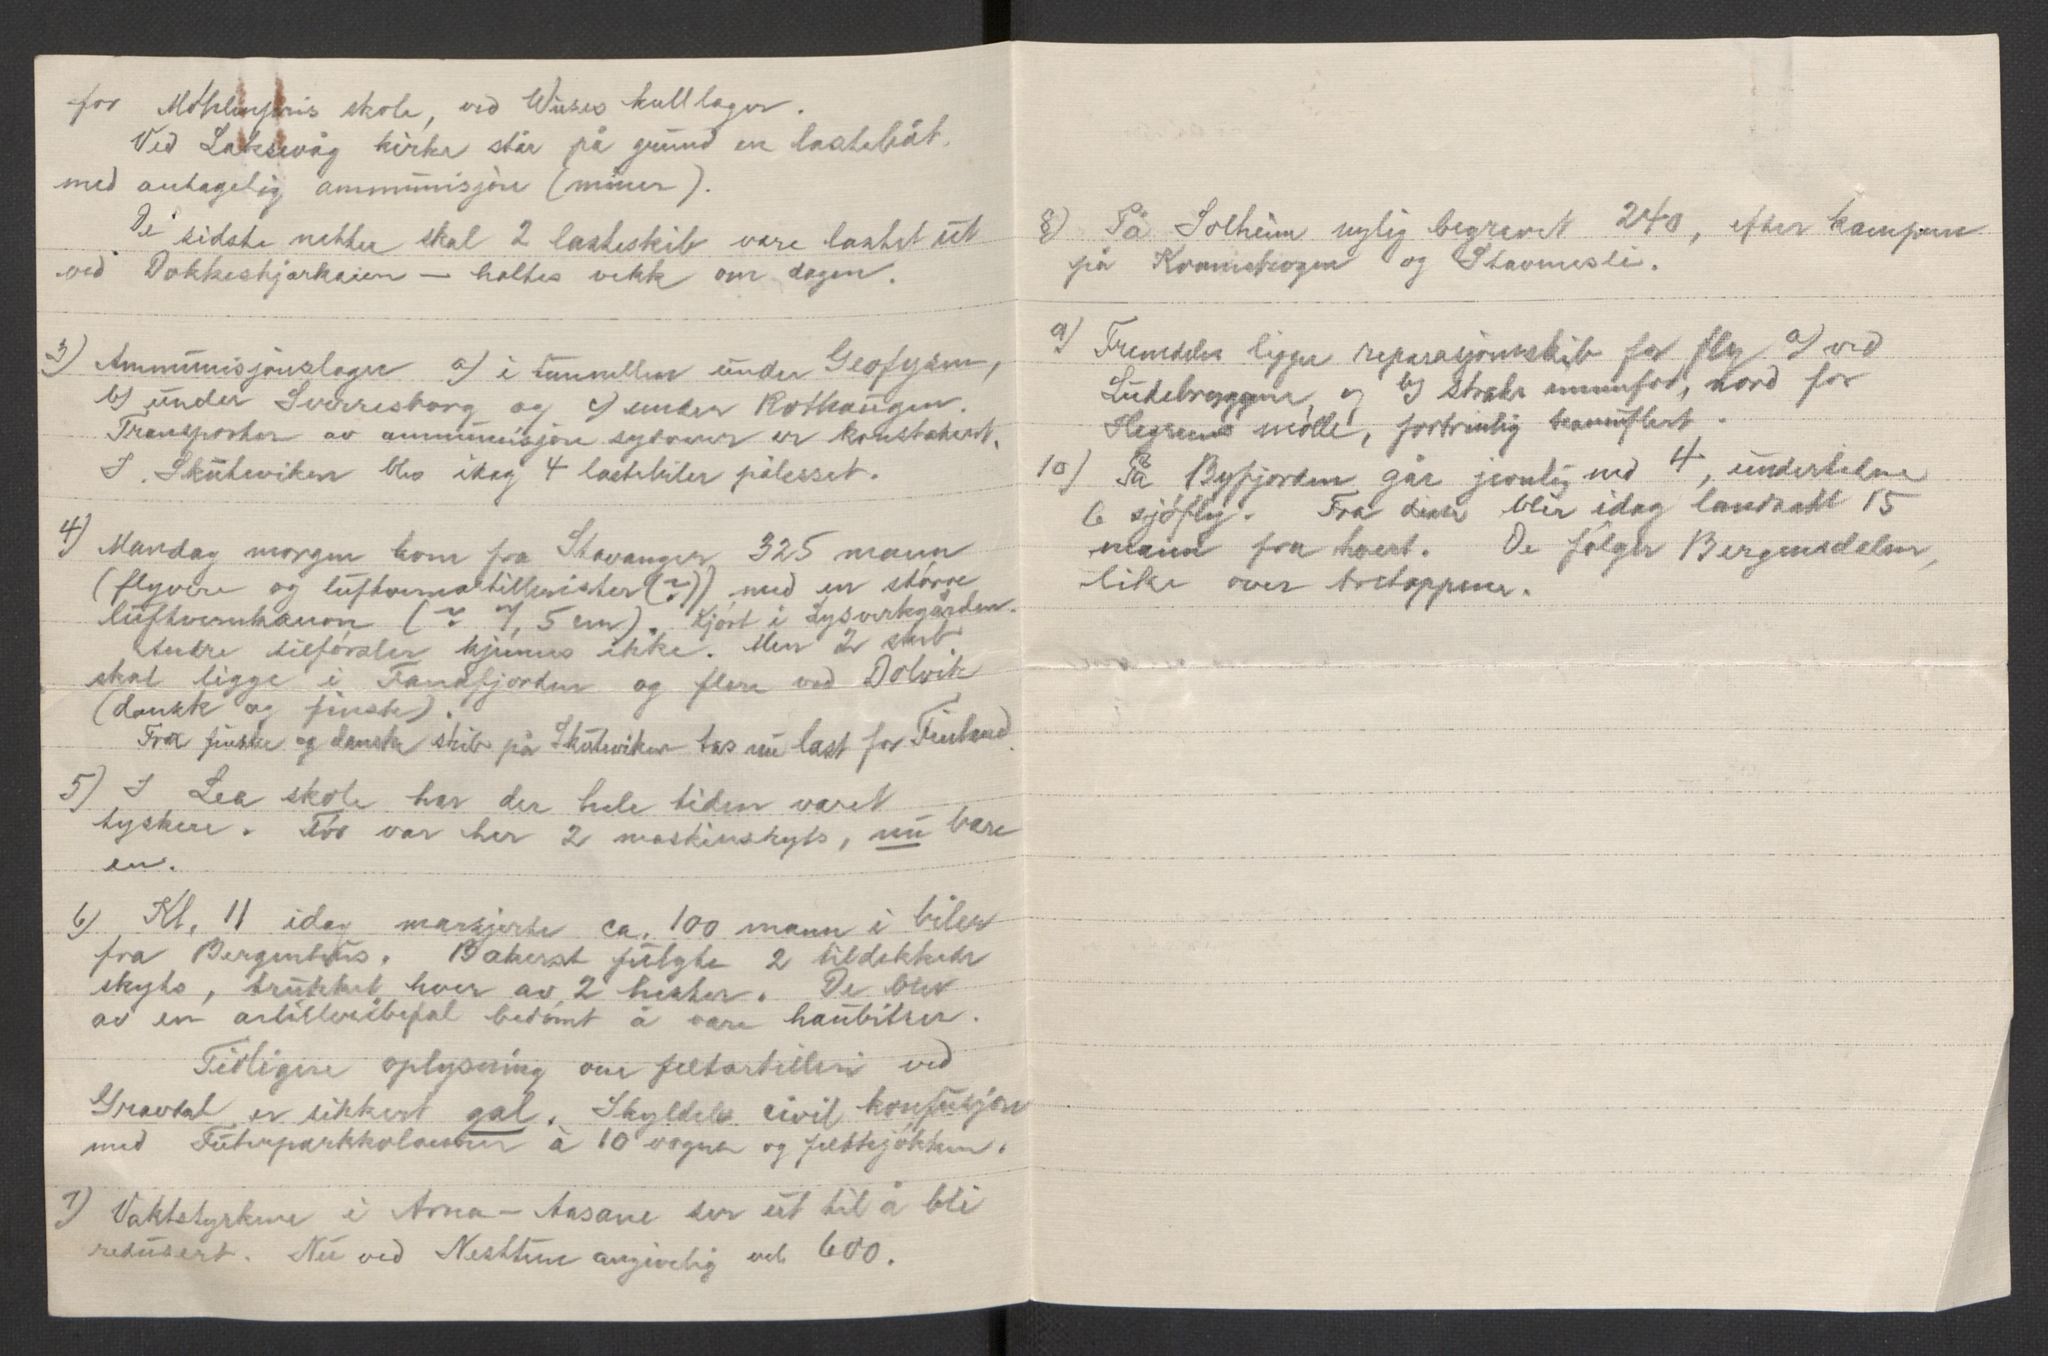 for Möhlenpris skole, ved Wüses kullager.
Ved Laksevåg kirke står på grund en lastebåt.
med antagelig ammunisjon (miner).
De sidste netter skal 2 lasteskib være lastet ut
ved Dokkeskjærkaien — holtes vekk om dagen.
3) Ammunisjonslager a) i tunnellen under Geofysen,
b) under Sverresborg og c) under Rothaugen.
Transporter av ammunisjon sydover er konstatert.
I Skuteviken blev idag 4 lastebiler pålesset.
4) Mandag morgen kom fra Stavanger 325 mann
(flyvere og luftvernartillerister (?)) med en større
luftvernkanon (? 7,5 cm). Kjørt i Lysverkgården.
Andre tilførsler kjennes ikke. Men 2 skib
skal ligge i Fanafjorden og flere ved Dolvik
(dansk og finske).
Fra finske og danske skib på Skuteviken tas nu last for Finland.
5) I Lea skole har der hele tiden været
tyskere. Før var her 2 maskinskyts, nu bare
en.
6) Kl. 11 idag marsjerte ca. 100 mann i biler
fra Bergenhus. Bakerst fulgte 2 tildekkede
skyts, trukket hver av 2 hester. De blev
av en artilleribefal bedømt å være haubitser.
Tidligere oplysning om feltartilleri ved
Gravdal er sikkert gal. Skyldes civil konfusjon
med Fuhrparkkolonner à 10 vogner og feltkjøkken.
7) Vaktstyrkene i Arna – Aasane ser ut til å bli
redusert. Nu ved Nesttun angivelig vel 600.
8) På Solheim nylig begravet 240, efter kampene
på Kvamskogen og Stavenesli.
9) Fremdeles ligger reparasjonsskib for fly a) ved
Ludebryggene, og b) straks innenfor, nord for
Hegrenes mølle, fortrinlig kamuflert.
10) På Byfjorden går jevnlig ned 4, undertiden
6 sjøfly. Fra disse blir idag landsatt 15
mann fra hvert. De følger Bergensdalen,
like over tretoppene.